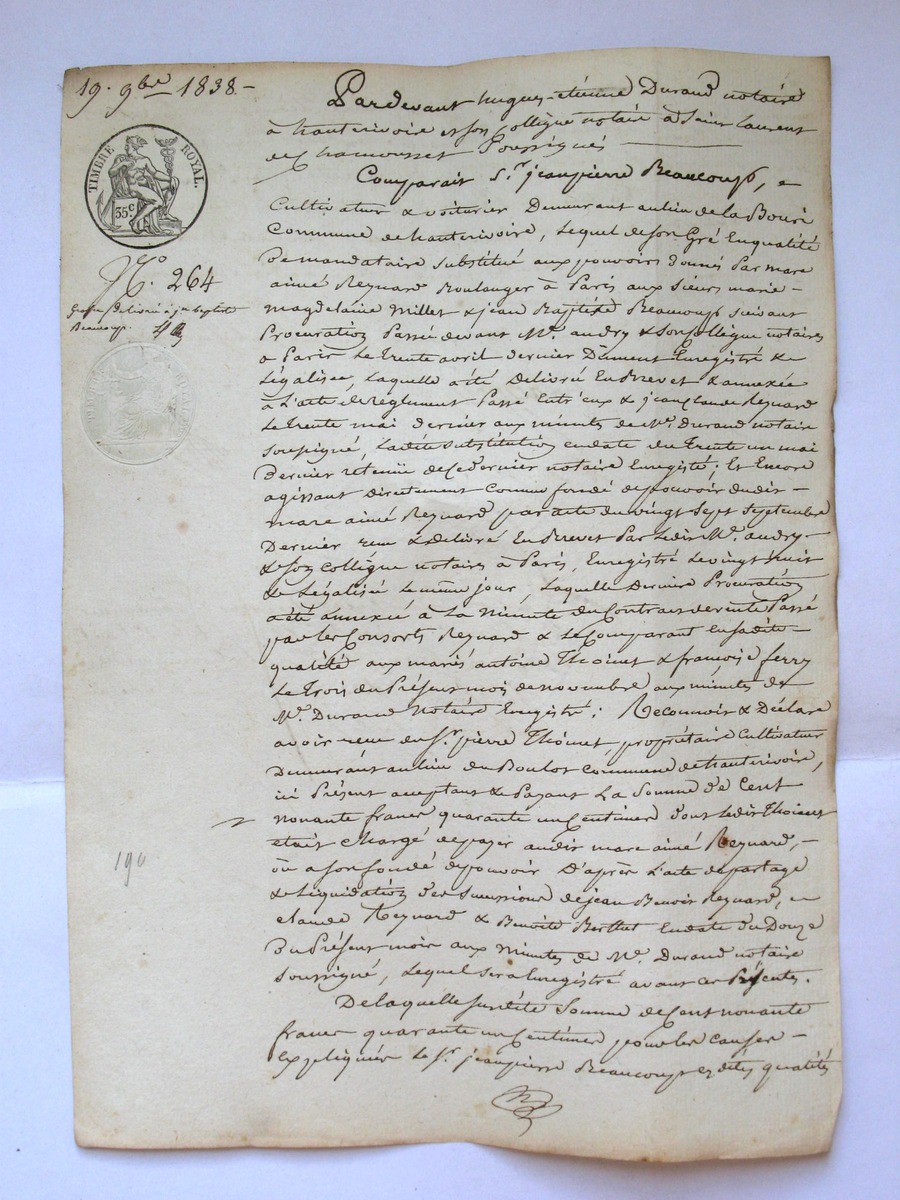 19. 9bre 1838.-
TIMBRE ROYAL.
35c
No. 264
Grosse délivrée à jn baptiste
Beaucoup.
190
Pardevant hugues-étienne Durand notaire
à hauterivoire et son Collègue notaire à Saint Laurent
de Chamousset Soussignés
Comparait Sr. jeanpierre Beaucoup,
Cultivateur & voiturier Demeurant au lieu de la Bouré
Commune de hauterivoire, lequel de son Gré En qualité
De mandataire substitué aux pouvoirs donnés Par marc
aimé Reynard Boulanger à Paris aux Sieurs marie-
magdelaine Millet & jean Baptiste Beaucoup suivant
Procuration Passée devant Me. audry & Son Collègue notaires
à Paris le trente avril dernier Dûment Enregistré &
Légalisée, Laquelle a été Délivrée En Brevet & annexée
à L'acte de Règlement Passé Entr'eux & jean claude Reynard
Le trente mai dernier aux minutes de Me. Durand notaire
soussigné, Ladite substitution en date du trente un mai
Dernier retenue de Ce dernier notaire Enregistré; Et Encore
agissant Directement Comme fondé de pouvoir dudit -
marc aimé Reynard par acte du vingt Sept Septembre
Dernier reçu & Délivré En Brevet Par Ledit Me. audry-
& Son Collègue notaires à Paris, Enregistré Le vingt huit
& Légalisé le même jour, Laquelle Dernière Procuration
a été annexée à La Minute du Contrat de vente Passé
par les Consorts Reynard & Le Comparant En sa dite-
qualité aux mariés antoine Thoinet & françoise ferry
Le Trois du Présent mois de novembre aux minutes de
Me. Durand Notaire Enregistré; Reconnoit & Déclare
avoir reçu du Sr. pierre Thoinet, propriétaire Cultivateur
Demeurant au lieu du Boulot commune de hauterivoire,
ici Présent acceptant & Payant La Somme de Cent
nonante francs quarante un Centimes dont Ledit Thoinet
était Chargé de payer audit marc aimé Reynard, -
ou a son fondé de pouvoir D'après L'acte de partage
& Liquidation des Successions de jean Benoit Reynard,
claude Reynard & Benoite Berthet En date du Douze
Du Présent mois aux Minutes de Me. Durand notaire
Soussigné, Lequel sera Enregistré avant ces Présentes.
De laquelle susdite Somme de Cent nonante
francs quarante un Centimes pour les causes -
Expliquées le Sr. jeanpierre Beaucoup es dites qualités